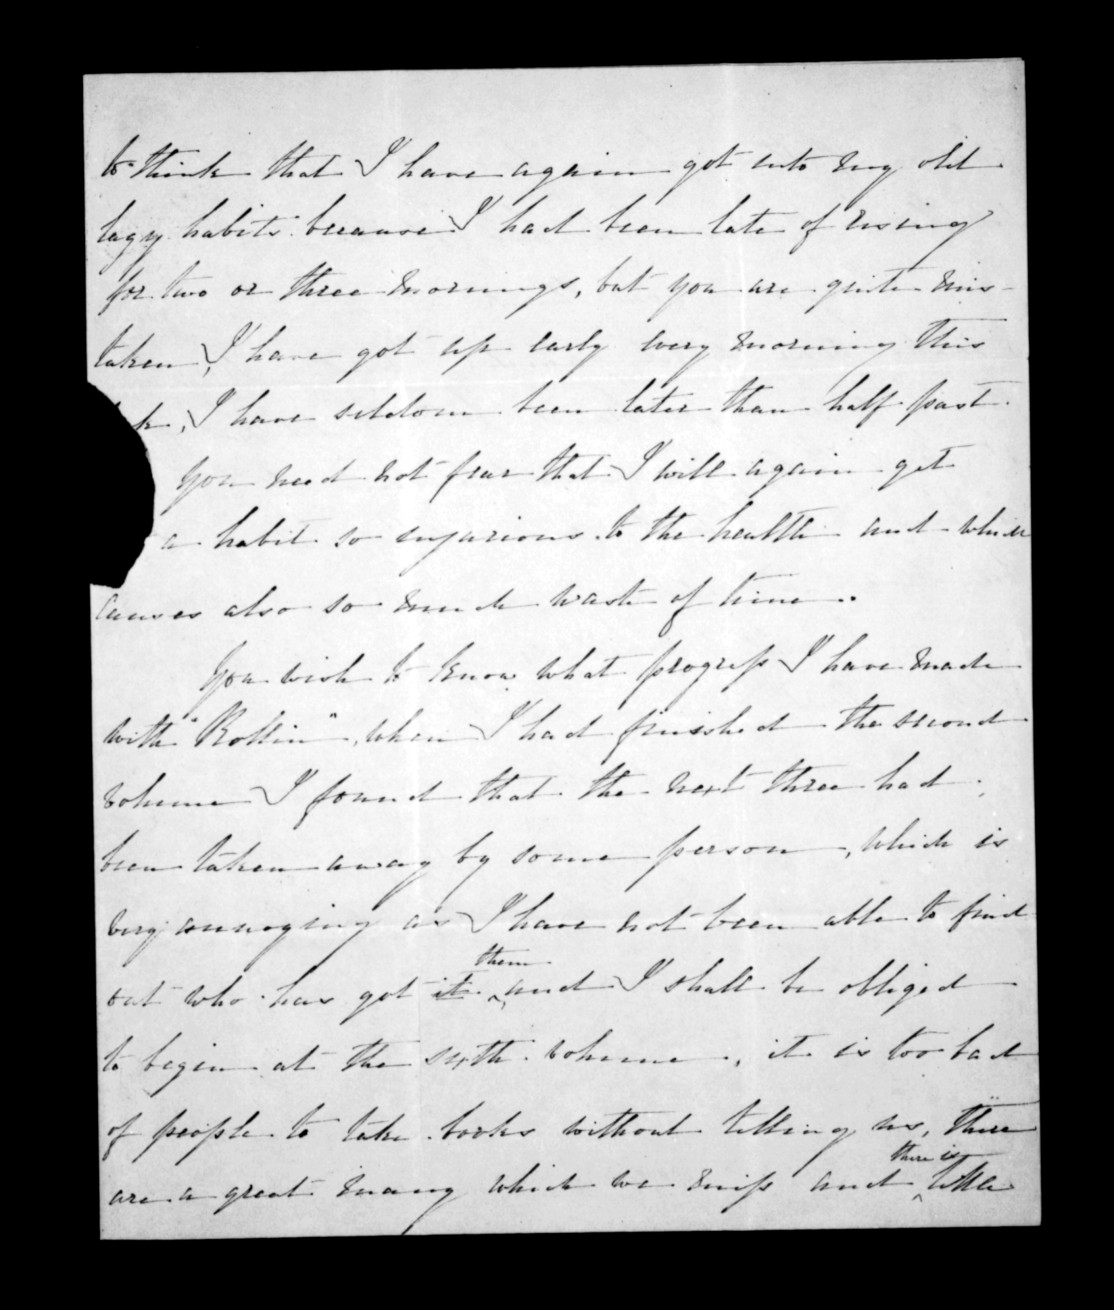 to think that I have again got into my old
lazy habits because I had been late of rising
for two or three mornings, but you are quite mis-
taken, I have got up early every morning this
k, I have seldom been later than half past
you need not fear that I will again get
a habit so injurious to the health and which
causes also so much waste of time.
You wish to know what progress I have made
with "Rollin", when I had finished the second
volume I found that the next three had
been taken away by some person, which is
very annoying as I have not been able to find
out who has got it them and I shall be obliged
to begin at the sixth volume, it is too bad
of people to take books without telling us, there
are a great many which we miss and there is little